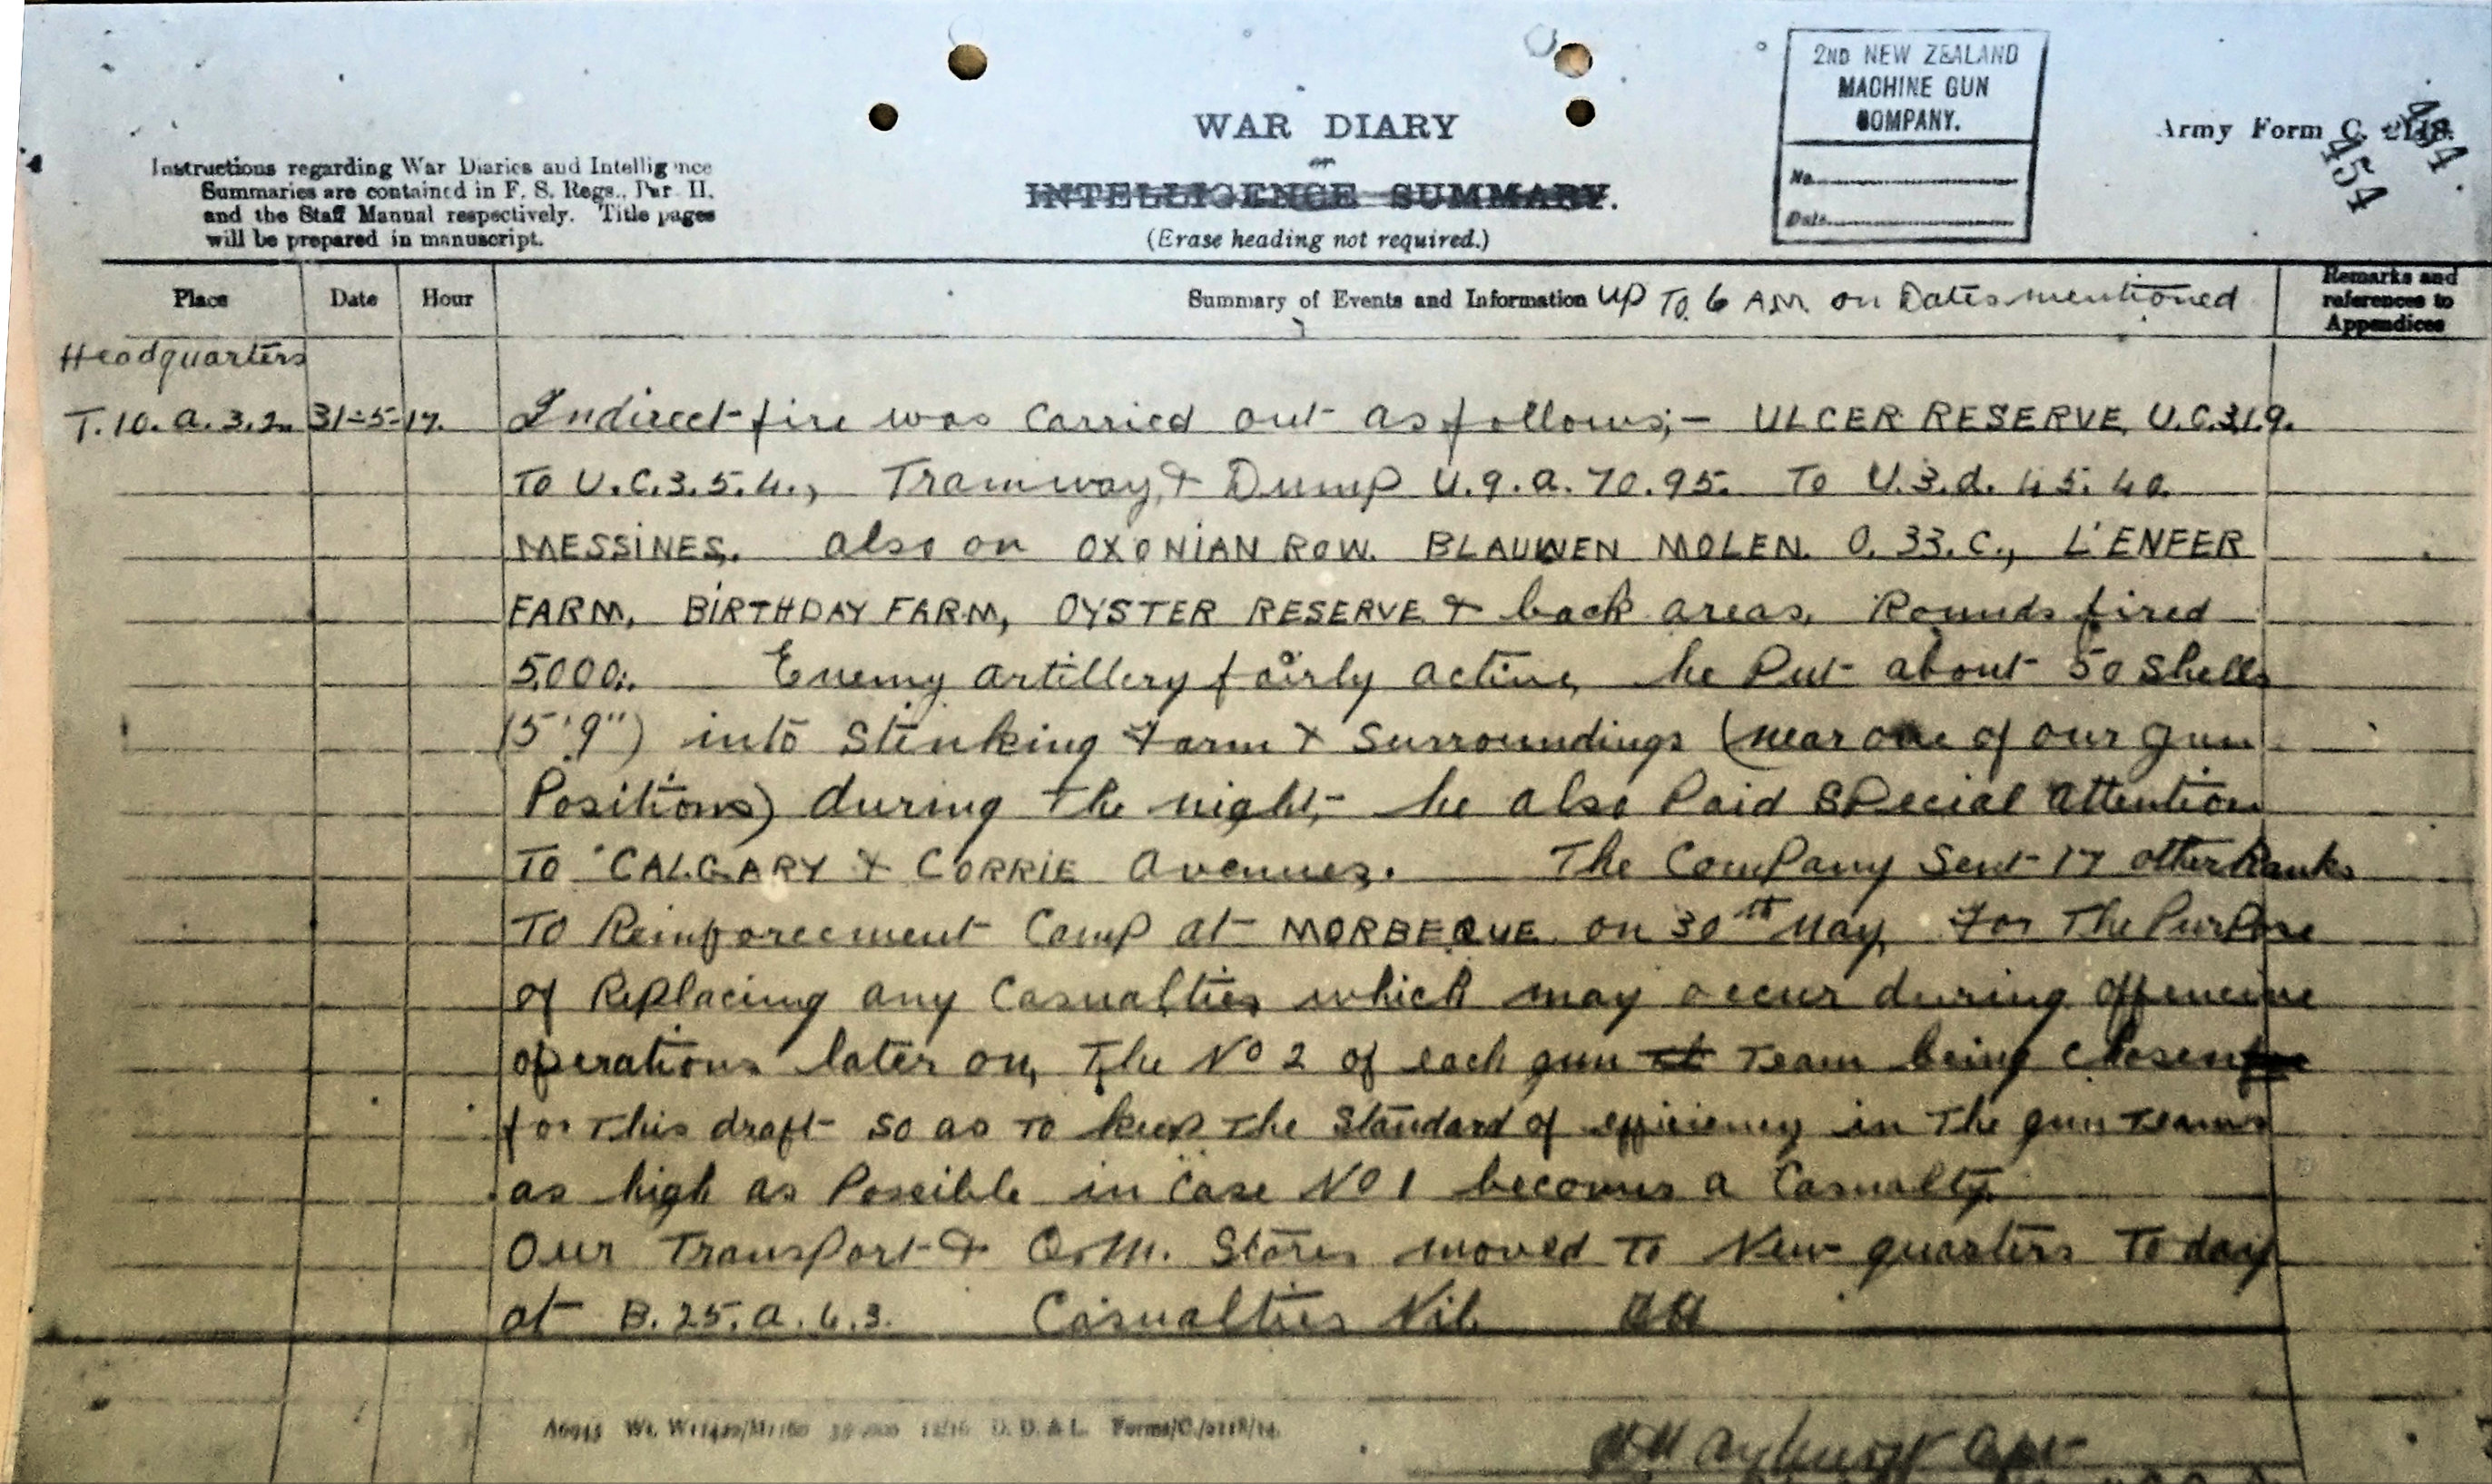 2ND NEW ZEALAND
MACHINE GUN
COMPANY.
No.
Date
WAR DIARY
or
INTELLIGENCE SUMMARY.
(Erase heading not required.)
Army Form C. 2118.
454
Instructions regarding War Diaries and Intelligence
Summaries are contained in F. S. Regs., Par II.
and the Staff Manual respectively. Title pages
will be prepared in manuscript.
Place Date Hour Summary of Events and Information up To 6 AM. on Dates mentioned
Remarks and
references to
Appendices
Headquarters
T.10.a.3.2. 31-5-17. Indirect fire was carried out as follows;- ULCER RESERVE, U.C.3.1.9.
To U.C.3.5.4., Tramway & Dump U.9.a.70.95. To U.3.d.45.40.
MESSINES. also on OXONIAN ROW. BLAUWEN MOLEN. O.33.C., L'ENFER
FARM, BIRTHDAY FARM, OYSTER RESERVE & back areas, Rounds fired
5,000. Enemy artillery fairly active, he Put about 50 Shells
(5'9") into Stinking Farm & Surroundings (near one of our gun
Positions) during the night,- he also Paid Special Attention
To CALGARY & CORRIE Avenues. The Company Sent 17 other Ranks
To Reinforcement Camp at MORBEQUE on 30th May, For The Purpose
of Replacing any Casualties which may occur during offencive
operations later on, The No 2 of each gun Team being chosen
for This draft so as To keep The Standard of efficiency in The gun Teams
as high as Possible in Case No 1 becomes a Casualty.
Our Transport & Q.M. Stores moved To New quarters Today
at B.25.a.6.3. Casualties Nil.
Forms/C./2118/14.